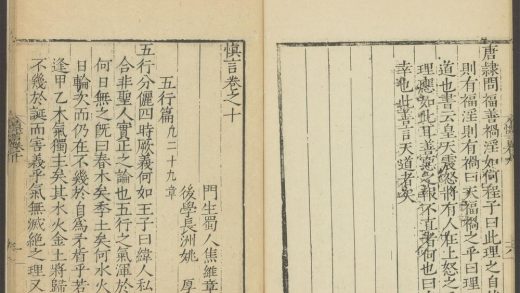 唐隸問福善禍淫如何程子曰此理之自
則有福淫則有禍曰天福禍之乎曰理
道也書云皇天震怒將有人在上怒之
理應如此耳善惡之報不直者何也曰
幸也此書言天道者矣
慎言卷之十
門生蜀人焦維章
後學長洲姚 厚
五行篇 凡二十九章
五行分儷四時厥義何如王子曰緯人私
合非聖人實正之論也五行之氣渾於
何日無之既曰春木矣季土矣何水火
日輪次而仍在不幾於自爲矛盾乎若
逢甲乙木氣獨主矣其水火金土將歸
不幾於誕而害義乎氣無滅絕之理又